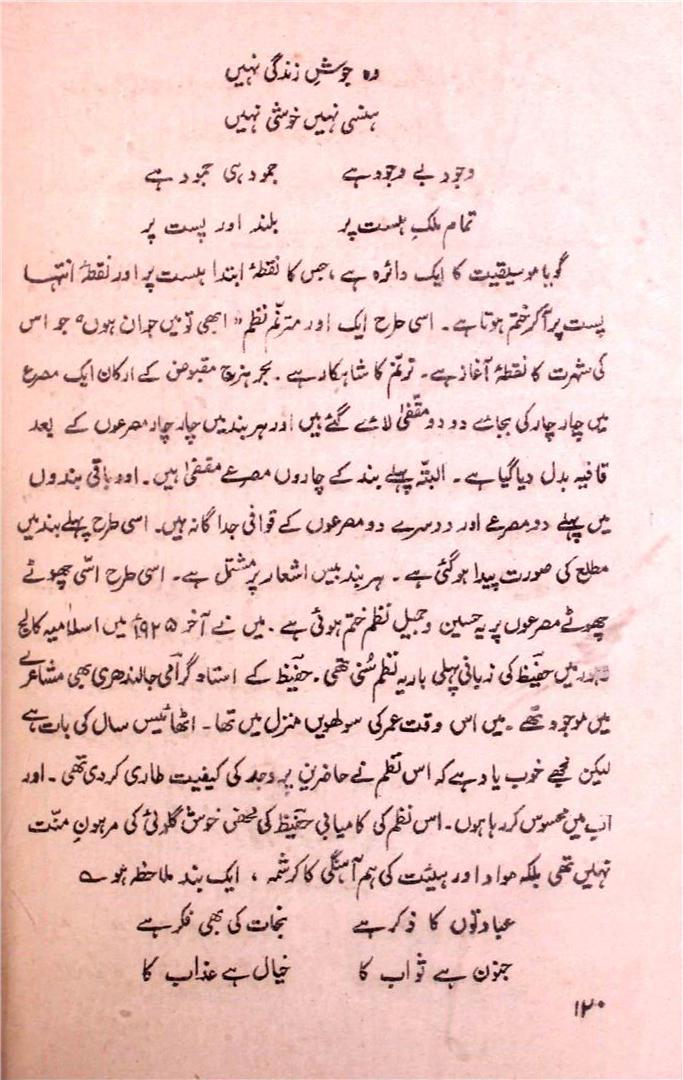 وہ جوشِ زندگی نہیں
ہنسی نہیں خوشی نہیں
وجود بے وجود ہے جمود ہی جمود ہے
تمام ملکِ ہست پر بلند اور پست پر
گویا موسیقیت کا ایک دائرہ ہے، جس کا نقطۂ ابتدا ہست پر اور نقطۂ انتہا
پست پر آ کر ختم ہوتا ہے۔ اسی طرح ایک اور مترنّم نظم "ابھی تو میں جوان ہوں" جو اس
کی شہرت کا نقطۂ آغاز ہے۔ ترنّم کا شاہکار ہے۔ بحر ہزج مقبوض کے ارکان ایک مصرع
میں چار چار کی بجائے دو دو مقفّیٰ لائے گئے ہیں اور ہر بند میں چار چار مصرعوں کے بعد
قافیہ بدل دیا گیا ہے۔ البتّہ پہلے بند کے چاروں مصرعے مقفیٰ ہیں۔ اور باقی بندوں
میں پہلے دو مصرعے اور دوسرے دو مصرعوں کے قوافی جداگانہ ہیں۔ اسی طرح پہلے بند میں
مطلع کی صورت پیدا ہو گئی ہے۔ ہر بند بیس اشعار پر مشتمل ہے۔ اسی طرح اسّی چھوٹے
چھوٹے مصرعوں پر یہ حسین و جمیل نظم ختم ہوئی ہے۔ میں نے آخر ۱۹۲۵ء میں اسلامیہ کالج
میں حفیظ کی زبانی پہلی بار یہ نظم سُنی تھی۔ حفیظ کے استاد گرامی جالندھری بھی مشاعرے
میں موجود تھے۔ میں اس وقت عمر کی سولھویں منزل میں تھا۔ اٹھائیس سال کی بات ہے
لیکن مجھے خوب یاد ہے کہ اس نظم نے حاضرین پر وجد کی کیفیت طاری کر دی تھی۔ اور
اب میں محسوس کر رہا ہوں۔ اس نظم کی کامیابی حفیظ کی محض خوش گلوئی کی مرہونِ منّت
نہیں تھی بلکہ مواد اور ہیئت کی ہم آہنگی کا کرشمہ، ایک بند ملاحظہ ہو ؎
عبادتوں کا ذکر ہے نجات کی بھی فکر ہے
جنون ہے ثواب کا خیال ہے عذاب کا
۱۲۰